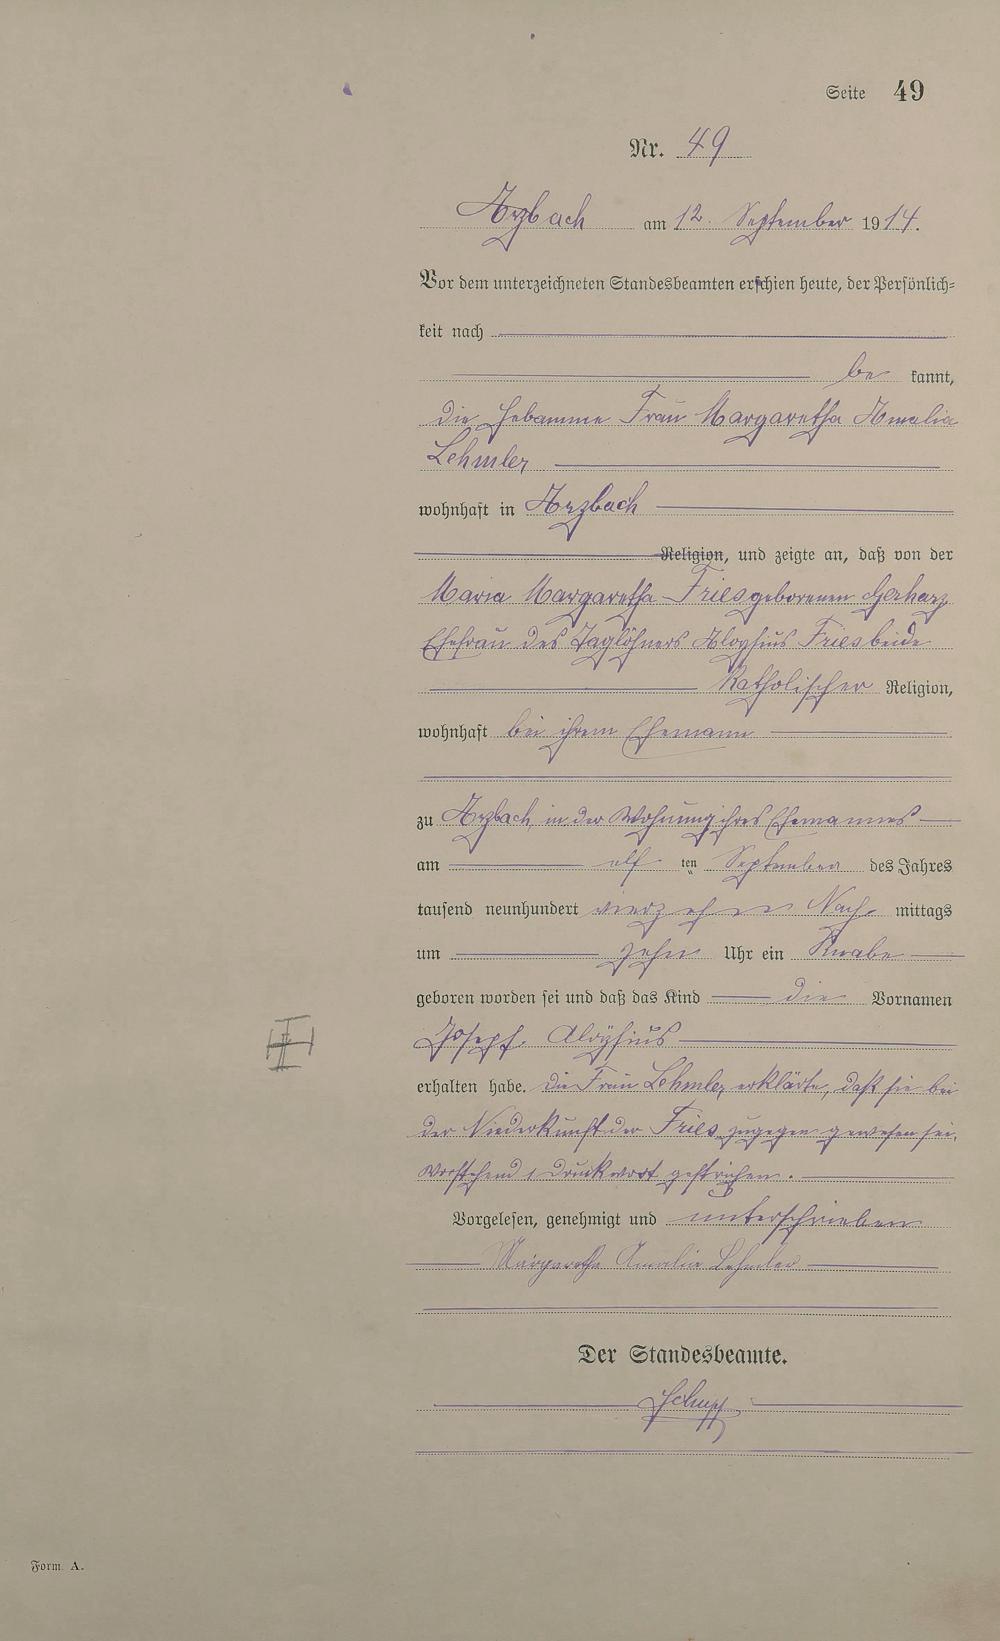 Seite 49
Nr. 49
Arzbach am 12. September 1914.
Vor dem unterzeichneten Standesbeamten erschien heute, der Persönlich-
keit nach
be kannt,
die Hebamme Frau Margaretha Amalia
Lehmler
wohnhaft in Arzbach
Religion, und zeigte an, daß von der
Maria Margaretha Fries geborenen Gerharz
Ehefrau des Taglöhners Aloysius Fries beide
katholischer Religion,
wohnhaft bei ihrem Ehemann
zu Arzbach, in der Wohnung ihres Ehemannes
am elf ten September des Jahres
tausend neunhundert vierzehn Nach mittags
um zehn Uhr ein Knabe
geboren worden sei und daß das Kind die Vornamen
Josef Aloysius
erhalten habe. Die Frau Lehmler erklärte, daß sie bei
der Niederkunft der Fries zugegen gewesen sei.
Vorstehend 1 Druckwort gestrichen.
Vorgelesen, genehmigt und unterschrieben
Margaretha Amalia Lehmler
Der Standesbeamte.
Schupp
Form. A.